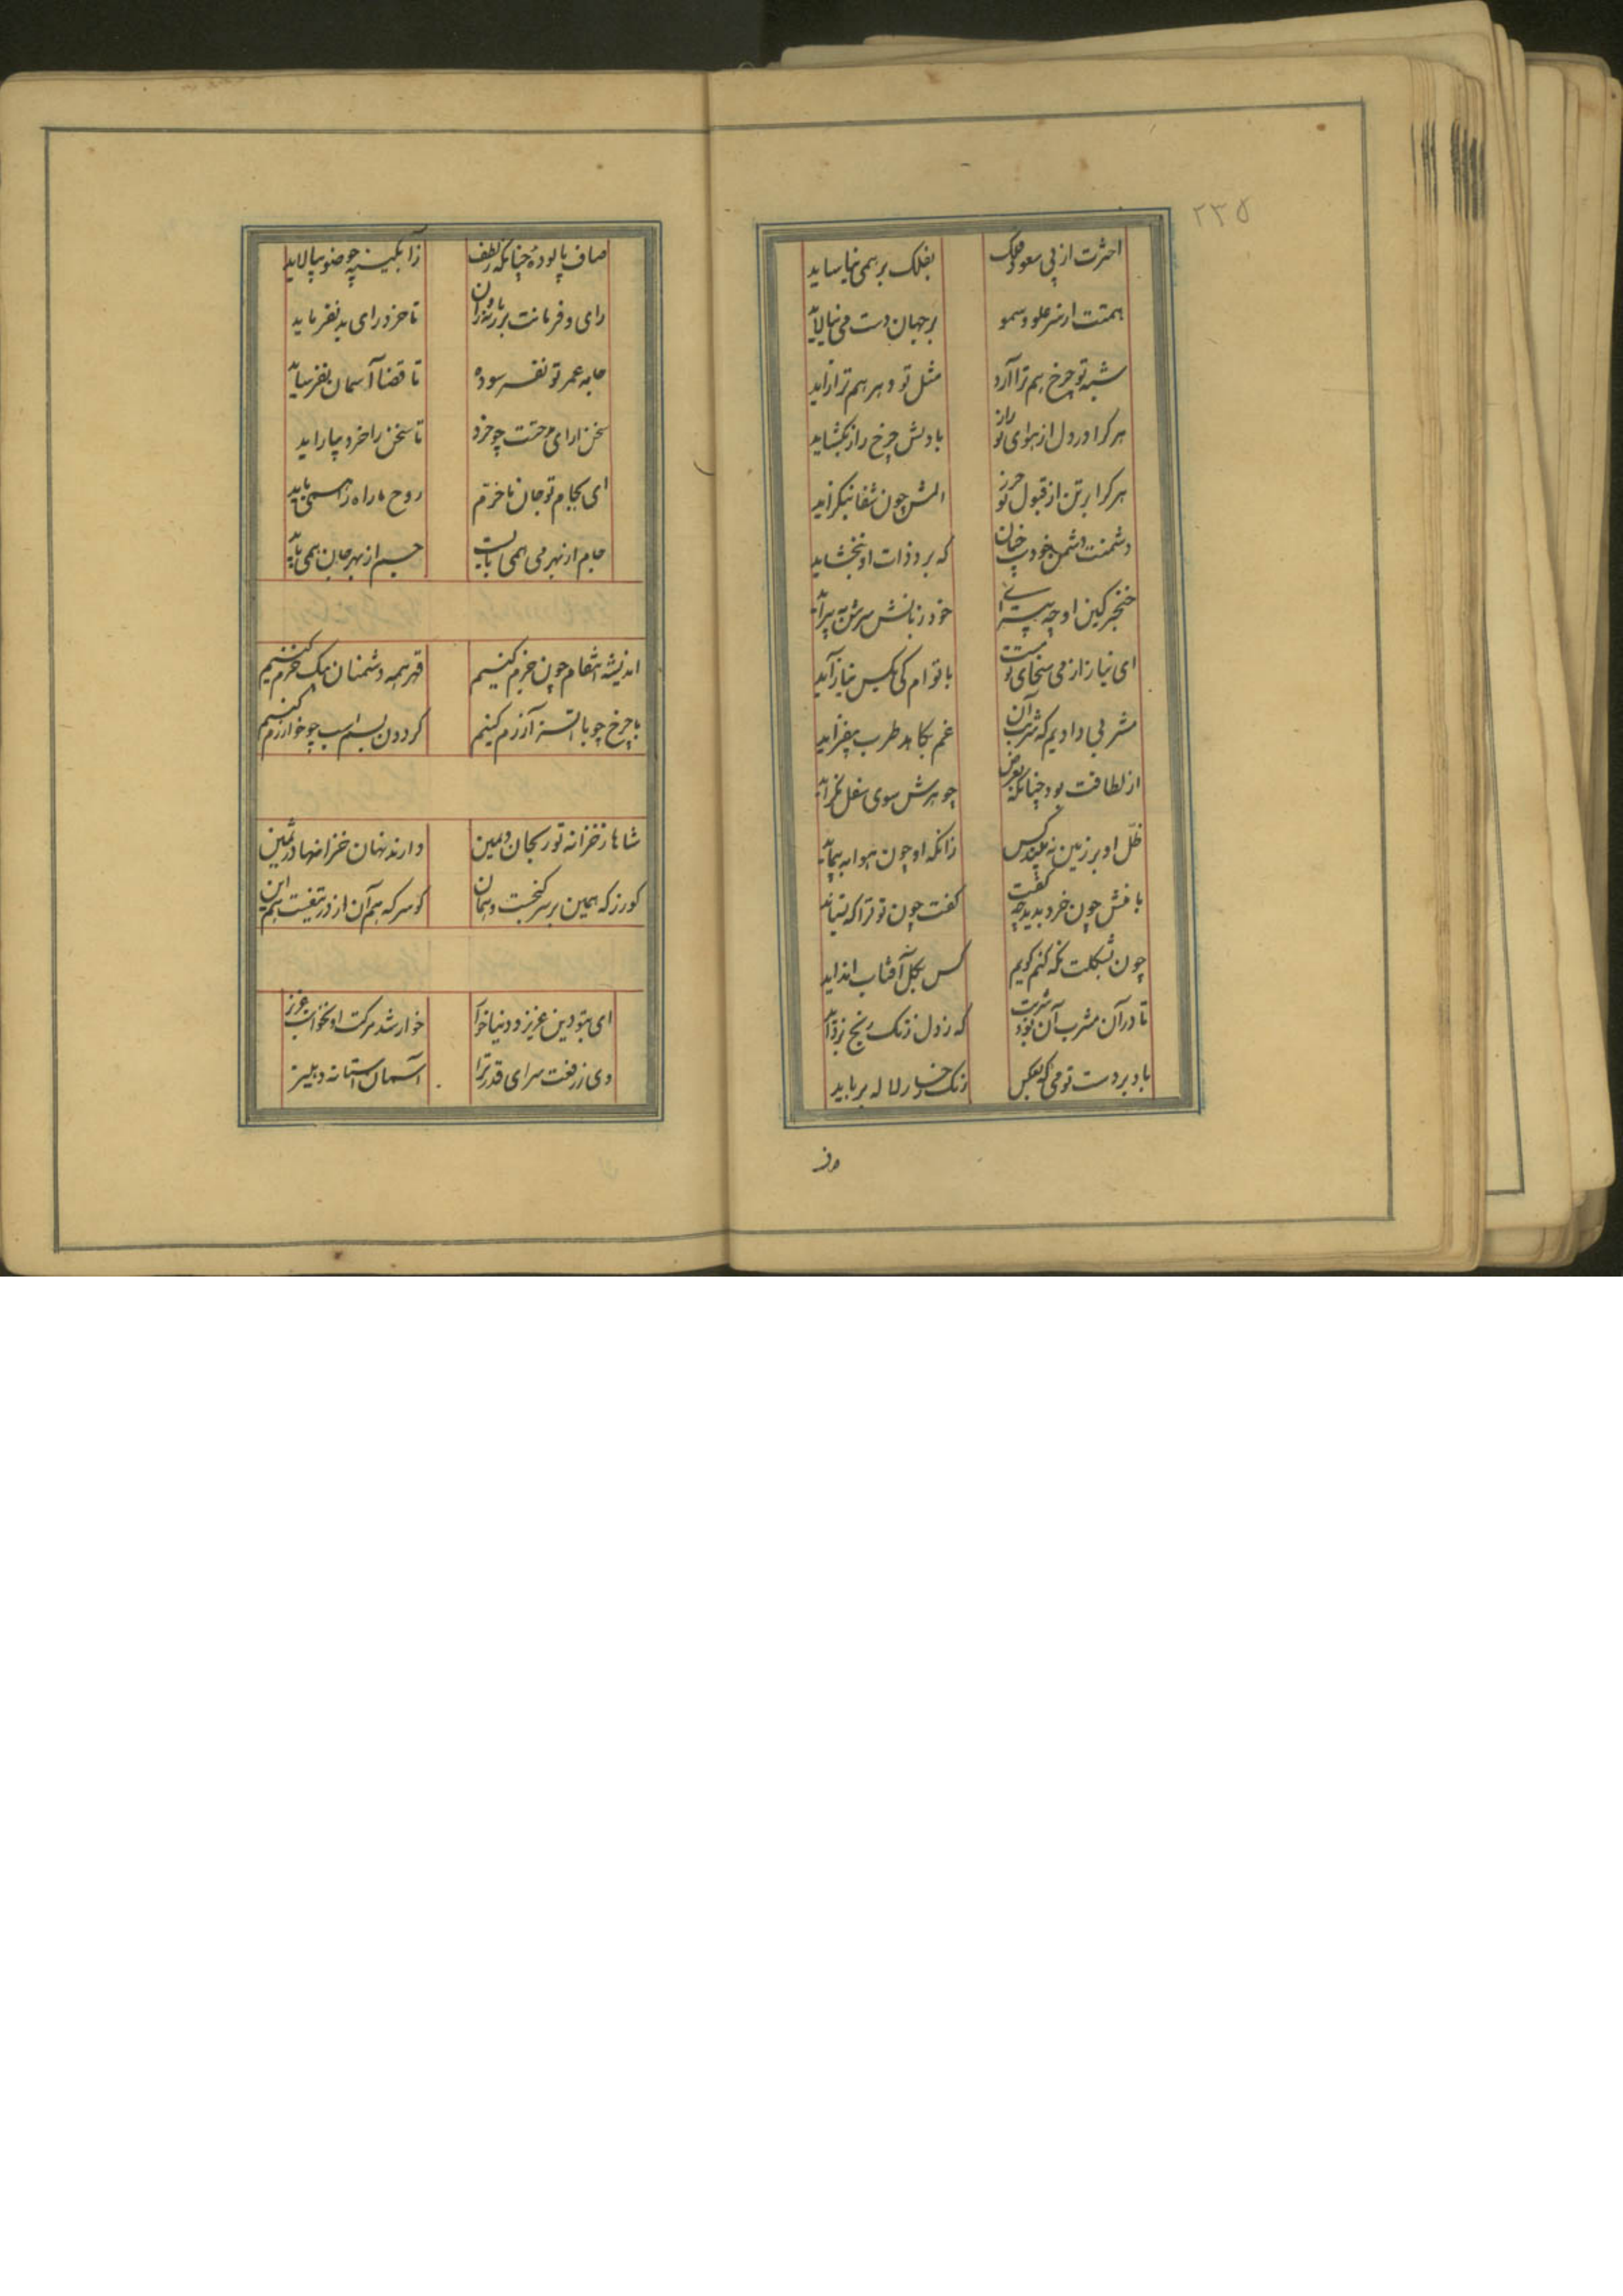 ۲۳۵
اخترت از پی سعود فلک
بفلک بر همی نیاساید
همتت از سر علو و سمو
بر جهان دست می نیالاید
شبه تو چرخ هم ترا آرد
مثل تو دهر هم ترا زاید
هر کرا در دل از هوای تو راز
با دلش چرخ راز بگشاید
هر کرا بر تن از قبول تو حرز
المش چون شفا نگزاید
دشمنت دشمن خودست چنان
که برو ذات او نبخشاید
خنجر کین او چه
خود زبانش سرش به پیراید
ای نیاز از می سخای تو مست
با تو ام کی بکس نیاز آید
مشربی دادیم که شربت آن
غم بکاهد طرب بیفزاید
از لطافت بود چنانکه بعرض
جوهرش سوی سفل نگراید
ظل او بر زمین نه بیند کس
زانکه او چون هوا به پیماید
بافش چون خرد بدید چه گفت
گفت چون تو ترا که بستاید
چون بشکلت نگه کنم گویم
کس بگل آفتاب انداید
تا در آن مشرب آن بود شربت
که ز دل زنگ رنج بزداید
باد بر دست تو می که بعکس
رنگ رخسار لاله برباید
صاف پالوده چنانکه ز لطف
ز آبگینه چو ضو بپالاید
رای و فرمانت بر زمانه روان
تا خرد رای بد نفرماید
جامه عمر تو نفرسوده
تا قضا آسمان بفرساید
سخن ارای مدحتت چو خرد
تا سخن را خرد بیاراید
ای بجام تو جان ما خرم
روح ما راه راهمی باید
جام از بهر می همی بایست
جسم از بهر جان همی باید
اندیشه انتقام چون جزم کنیم
قهر همه دشمنان بیک حزم کنیم
با چرخ چو با اتسز آرزم کنیم
گردون بسم اسب چو خوارزم کنیم
شاها ز خزانه تو ریحان و یمین
دارند نهان خزانها در ثمین
کورز که همین بر سر گنجست و همان
کو سر که هم آن از در تیغست هم این
ای بتو دین عزیز و دنیا خوار
خوار شد هر کت او نخواست عزیز
وی ز رفعت سرای قدر ترا
آسمان استانه و دهلیز